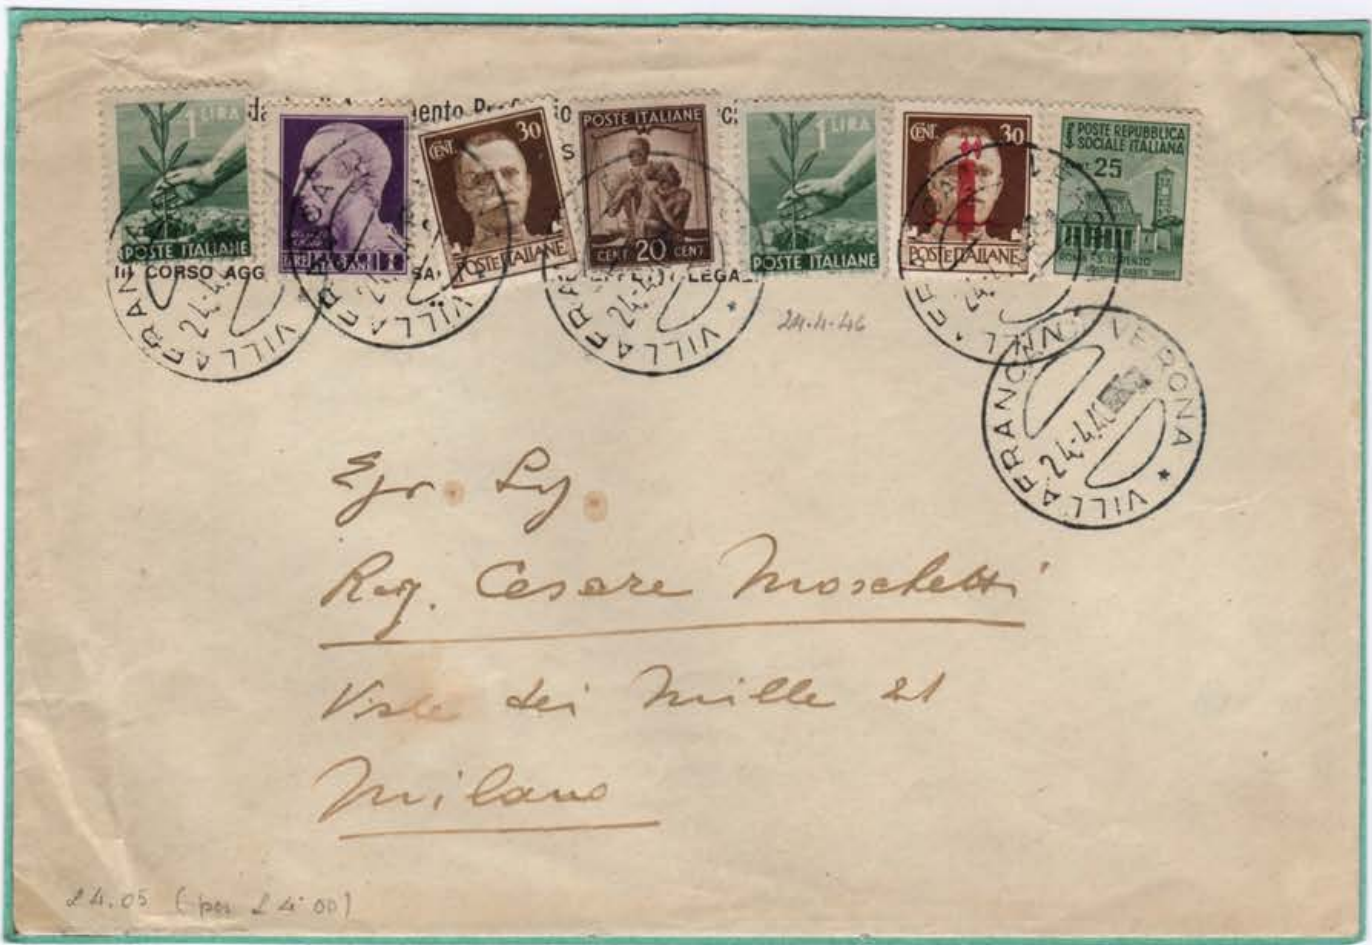 1 LIRA
POSTE ITALIANE
LIRE 1
CENT. 30
POSTE ITALIANE
POSTE ITALIANE
CENT 20 CENT
1 LIRA
POSTE ITALIANE
CENT. 30
POSTE ITALIANE
POSTE REPUBBLICA
SOCIALE ITALIANA
CENT 25
III CORSO AGG
LEGA
VILLAFRAN
24.4
VILLAF
VILLAFRA
24.4
24-4-46
VILLAFRANCA VERONA *
24.4.4
Egr. Sig.
Rag. Cesare Moschetti
Viale dei Mille 21
Milano
£4.05 (per £4.00)